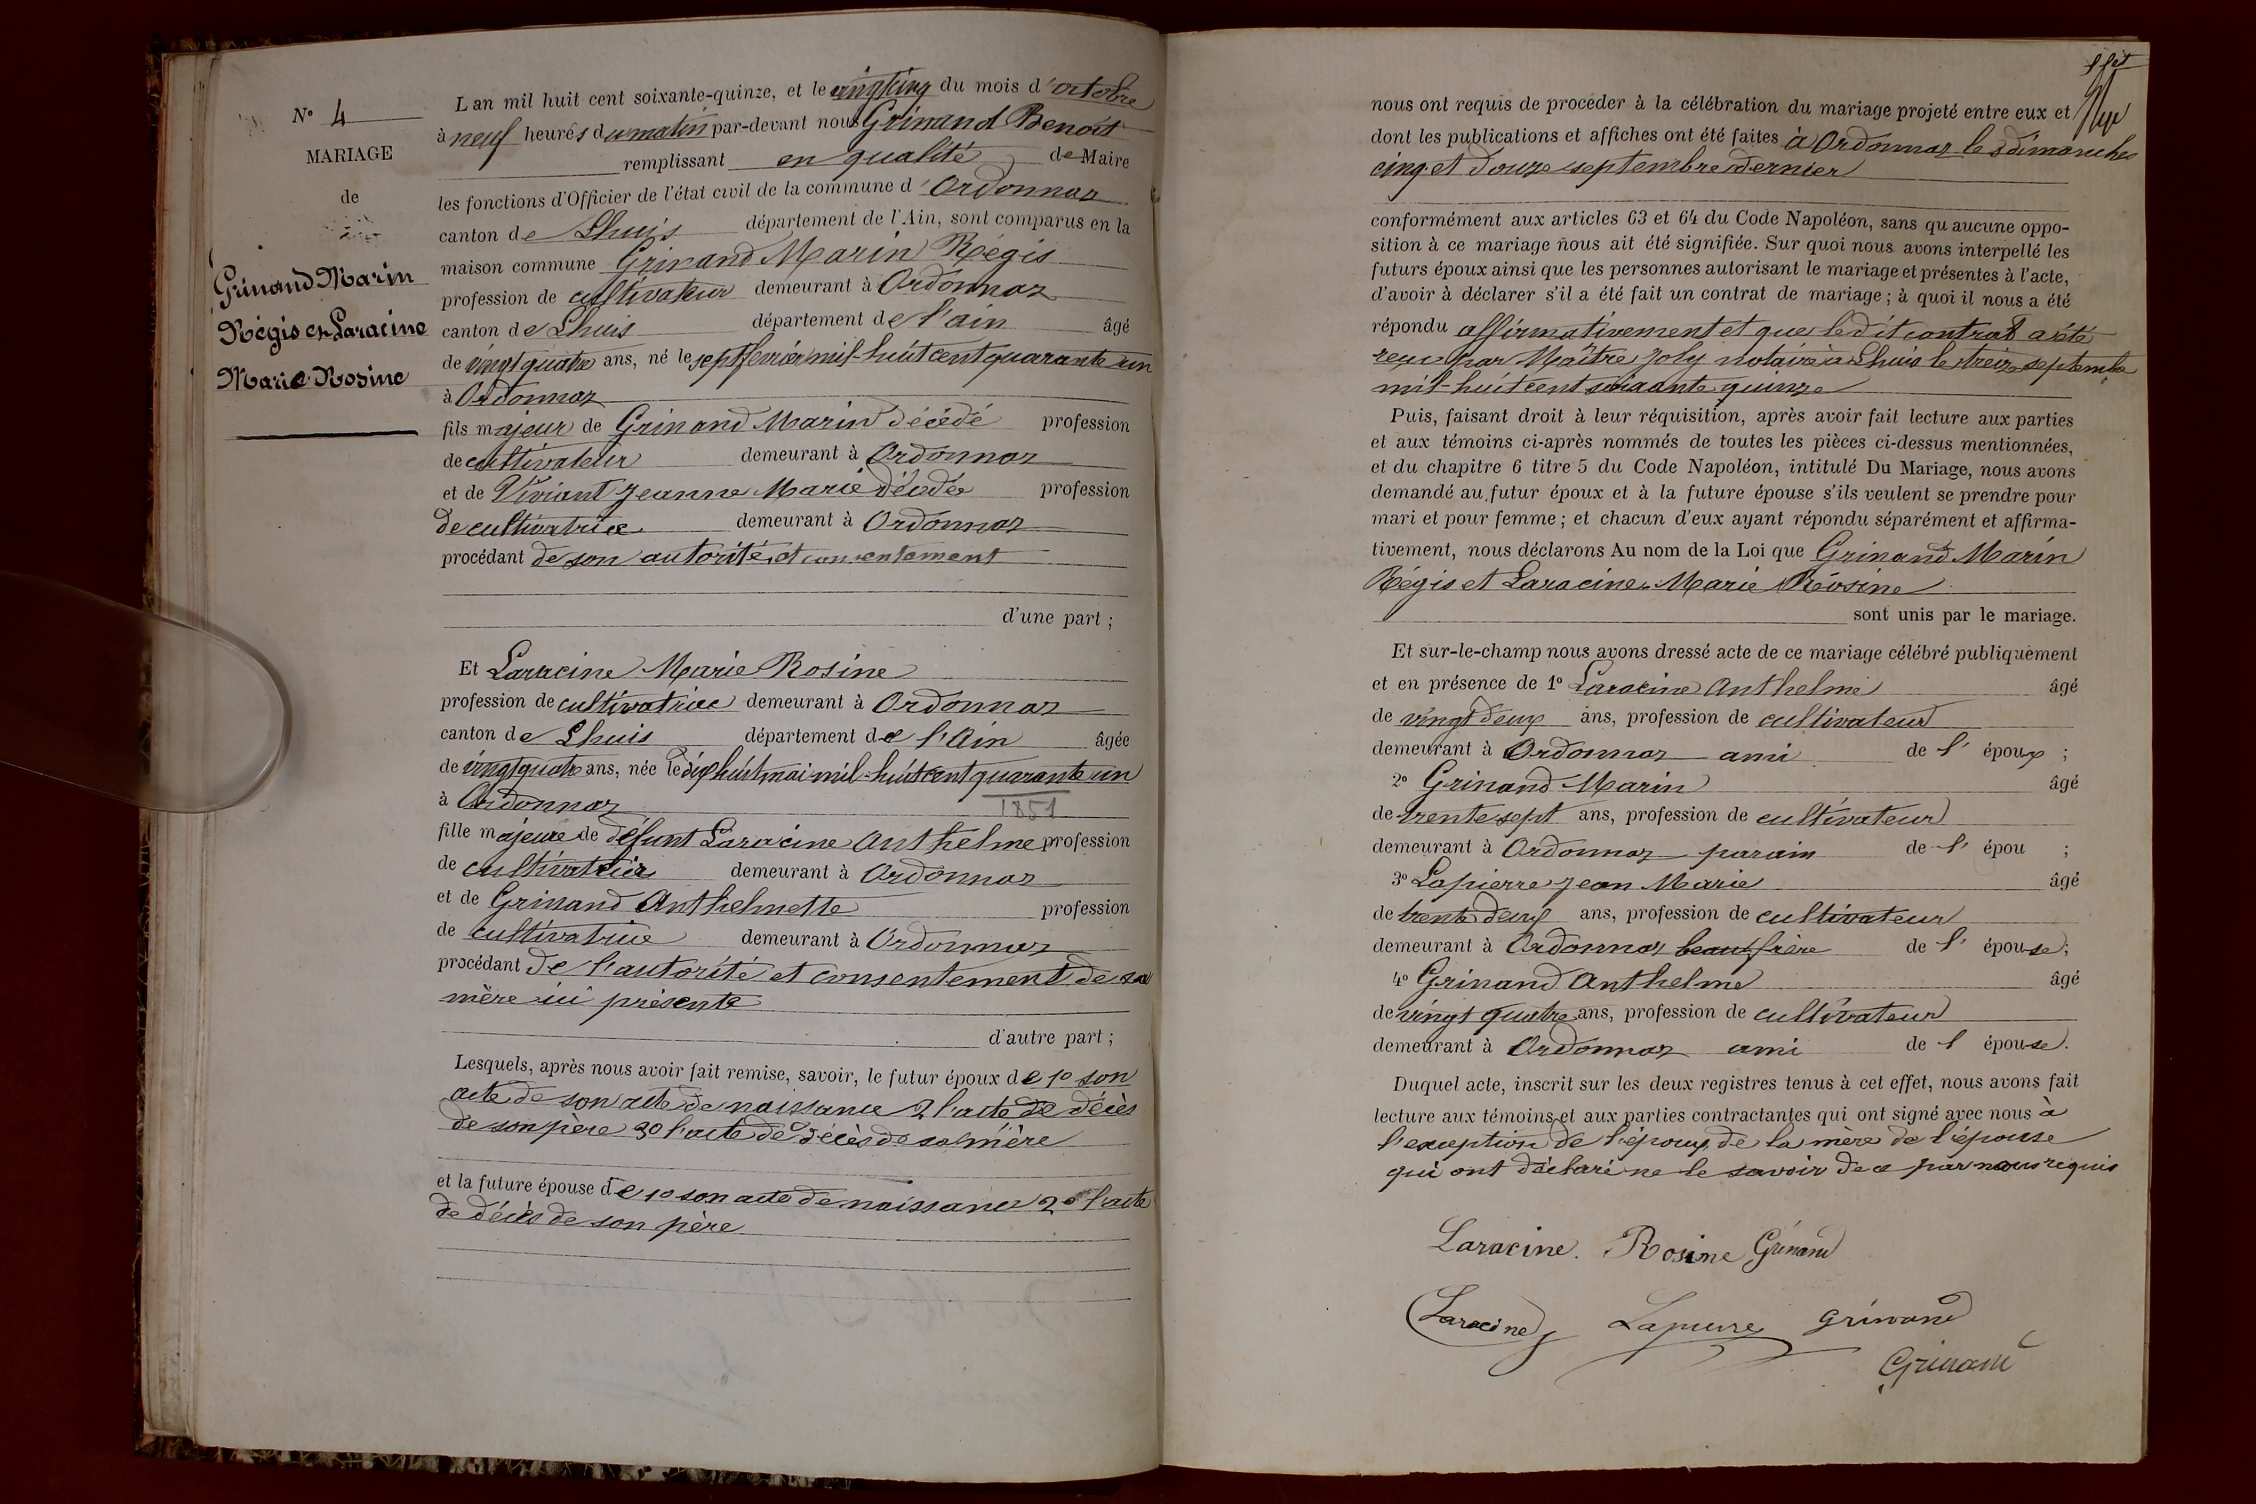 N° 4
MARIAGE
de
Grinand Marin
Régis et Laracine
Marie Rosine
L'an mil huit cent soixante-quinze, et le vingt cinq du mois d'octobre
à neuf heures du matin par-devant nous Grinand Benoît
remplissant en qualité de Maire
les fonctions d'Officier de l'état civil de la commune d'Ordonnaz
canton de Lhuis département de l'Ain, sont comparus en la
maison commune Grinand Marin Régis
profession de cultivateur demeurant à Ordonnaz
canton de Lhuis département de l'ain âgé
de vingt quatre ans, né le sept février mil-huit cent quarante un
à Ordonnaz
fils majeur de Grinand Marin décédé profession
de cultivateur demeurant à Ordonnaz
et de Viviant Jeanne Marie décédée profession
de cultivatrice demeurant à Ordonnaz
procédant de son autorité et consentement
d'une part ;
Et Laracine Marie Rosine
profession de cultivatrice demeurant à Ordonnaz
canton de Lhuis département de l'Ain âgée
de vingt quatre ans, née le dix huit mai mil-huit cent quarante un
1851
à Ordonnaz
fille majeure de défunt Laracine Anthelme profession
de cultivateur demeurant à Ordonnaz
et de Grinand Anthelmette profession
de cultivatrice demeurant à Ordonnaz
procédant de l'autorité et consentement de sa
mère ici présente
d'autre part ;
Lesquels, après nous avoir fait remise, savoir, le futur époux de 1° son
acte de son acte de naissance 2 l'acte de décès
de son père 3° l'acte de décès de sa mère
et la future épouse de 1° son acte de naissance 2° l'acte
de décès de son père
nous ont requis de procéder à la célébration du mariage projeté entre eux et
dont les publications et affiches ont été faites à Ordonnaz les dimanches
cinq et douze septembre dernier
conformément aux articles 63 et 64 du Code Napoléon, sans qu'aucune oppo-
sition à ce mariage nous ait été signifiée. Sur quoi nous avons interpellé les
futurs époux ainsi que les personnes autorisant le mariage et présentes à l'acte,
d'avoir à déclarer s'il a été fait un contrat de mariage ; à quoi il nous a été
répondu affirmativement et que ledit contrat a été
reçu par Maître Joly notaire à Lhuis le treize septembre
mil-huit cent soixante quinze
Puis, faisant droit à leur réquisition, après avoir fait lecture aux parties
et aux témoins ci-après nommés de toutes les pièces ci-dessus mentionnées,
et du chapitre 6 titre 5 du Code Napoléon, intitulé Du Mariage, nous avons
demandé au futur époux et à la future épouse s'ils veulent se prendre pour
mari et pour femme ; et chacun d'eux ayant répondu séparément et affirma-
tivement, nous déclarons Au nom de la Loi que Grinand Marin
Régis et Laracine Marie Rosine
sont unis par le mariage.
Et sur-le-champ nous avons dressé acte de ce mariage célébré publiquement
et en présence de 1° Laracine Anthelme âgé
de vingt deux ans, profession de cultivateur
demeurant à Ordonnaz ami de l' époux ;
2° Grinand Marin âgé
de trente sept ans, profession de cultivateur
demeurant à Ordonnaz parain de l' épou ;
3° Lapierre Jean Marie âgé
de trente deux ans, profession de cultivateur
demeurant à Ordonnaz beau frère de l' épouse ;
4° Grinand Anthelme âgé
de vingt quatre ans, profession de cultivateur
demeurant à Ordonnaz ami de l épouse.
Duquel acte, inscrit sur les deux registres tenus à cet effet, nous avons fait
lecture aux témoins et aux parties contractantes qui ont signé avec nous à
l'exception de l'époux, de la mère de l'épouse
qui ont déclaré ne le savoir de ce par nous requis
Laracine. Rosine Grinand
Laracine Lapierre Grinand
Grinand